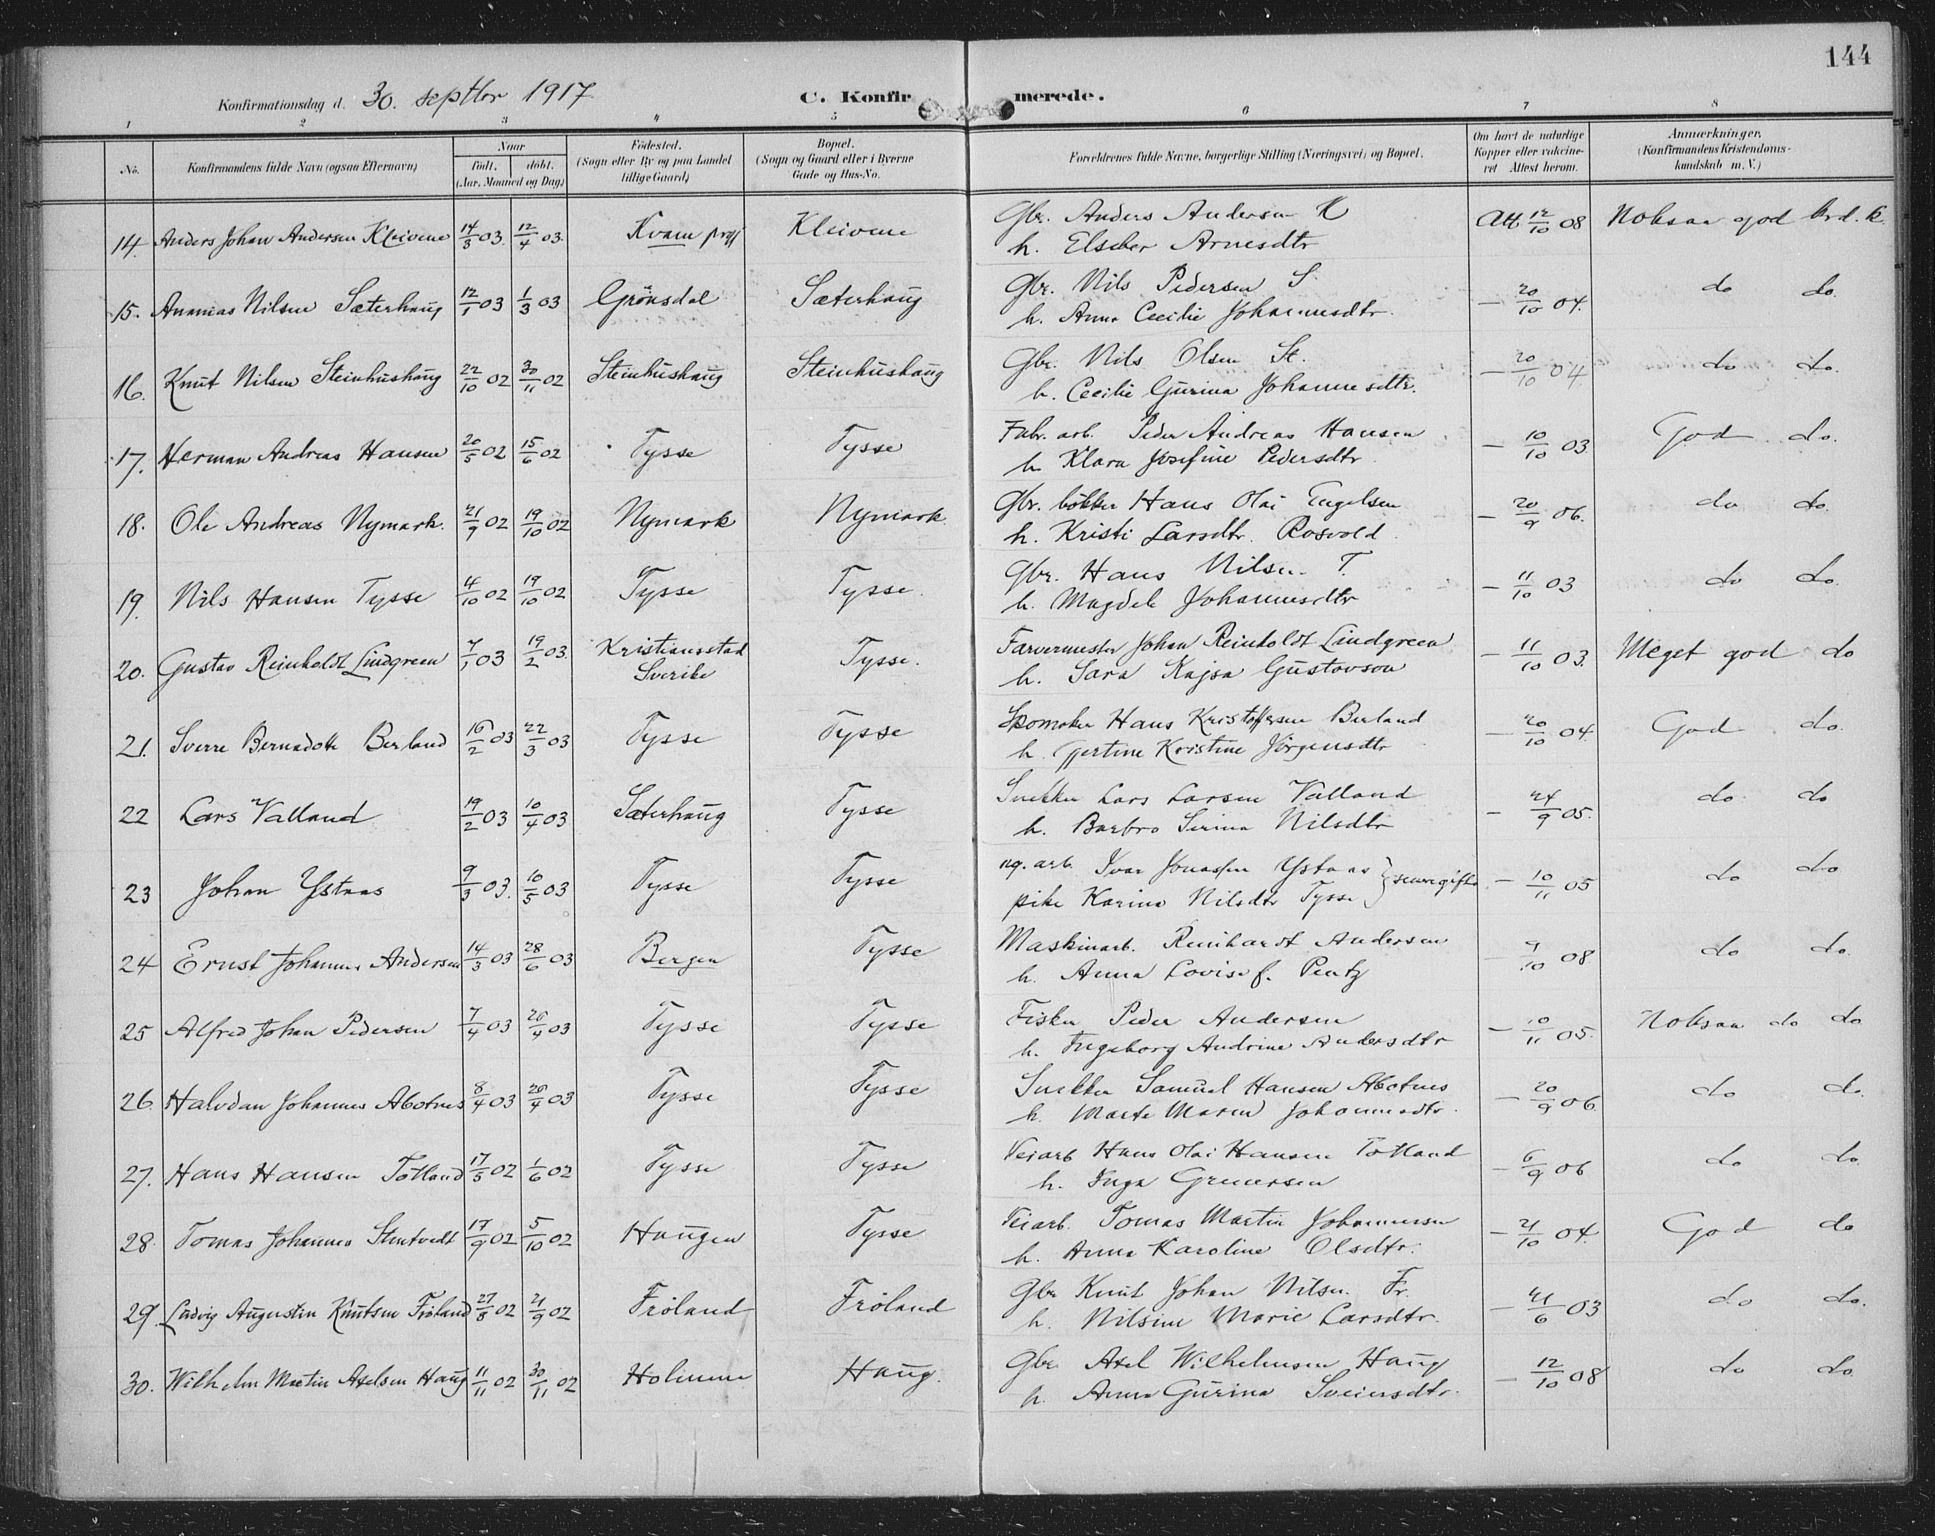 144
Konfirmationsdag d. 30. septbr 1917
C. Konfirmerede.
1 2 3 4 5 6 7 8
No.
Konfirmandens fulde Navn (ogsaa Efternavn)
Naar
født. døbt.
(Aar, Maaned og Dag)
Fødested.
(Sogn eller By og paa Landet
tillige Gaard)
Bopæl.
(Sogn og Gaard eller i Byerne
Gade og Hus-No.
Forældrenes fulde Navne, borgerlige Stilling (Næringsvei) og Bopæl.
Om havt de naturlige
Kopper eller vaccine-
ret Attest herom.
Anmærkninger.
(Konfirmandens Kristendoms-
kundskab m. V.)
14. Anders Johan Andersen Kleivene 14/3 03. 12/4 03. Kvam prgj Kleivene Gbr. Anders Andersen K Att. 12/10 08 Noksaa god
h. Arnesdtr
15. Ananias Nilsen Sæterhaug 12/1 03 1/3 03 Grønsdal Sæterhaug Gbr. Nils Pedersen S — 20/10 04. do do.
h. Anna Cecilie Johannesdtr.
16. Knut Nilsen Steinhushaug 22/10 02 30/11 02 Steinhushaug Steinhushaug Gbr. Nils Olsen St. — 20/10 04 do do.
h. Cecilie Gurina Johannesdtr.
17. Herman Andreas Hansen 20/5 02 15/6 02 Tysse Tysse Fabr. arb. Peder Andreas Hansen — 10/10 03 God do.
h Klara Josefine Pedersdtr
18. Ole Andreas Nymark. 21/9 02 19/10 02 Nymark Nymark. Gbr. bøkker Hans Olai Engelsen — 20/9 06. do do.
h. Kristi Larsdtr. Rosvold
19. Nils Hansen Tysse 4/10 02 19/10 02 Tysse Tysse. Gbr. Hans Nilsen T. — 11/10 03 do do.
h. Magdele Johannesdtr
20. Gustav Reinholdt Lindgreen 7/1 03 19/2 03. Kristianstad Tysse. Farvermester Johan Reinholdt Lindgreen — 11/10 03. Meget god do
Sverike h. Sara Kajsa Gustavson
21. Sverre Bernadotte Berland 16/2 03 22/3 03 Tysse Tysse Skomaker Hans Kristoffersen Berland — 20/10 04. God do.
h. Gjertine Kristine Jörgensdtr
22 Lars Valland 19/2 03 10/4 03 Sæterhaug Tysse Snekker Lars Larsen Valland — 24/9 05. do do
h. Barbro Serina Nilsdtr
23 Johan Ystaas 9/3 03. 10/5 03 Tysse Tysse ug. arb. Ivar Jonassen Ystaas } senere gifte — 10/11 05 do do
pike Karina Nilsdtr Tysse
24 Ernst Johannes Andersen 14/3 03 28/6 03 Bergen Tysse Maskinarb. Reinhardt Andersen 9/10 08 do do.
h. Anna Lovise f. Pentz
25 Alfred Johan Pedersen 7/4 03 26/4 03 Tysse Tysse Fisker Peder Andersen — 10/11 05. Noksaa do do
h. Ingeborg Andrine Andersdtr
26. Halvdan Johannes Abotnes 8/4 03 26/4 03 Tysse Tysse Snekker Samuel Hansen Abotnes — 20/9 06. do do.
h. Marta Maren Johannesdtr.
27. Hans Hansen Totland 17/5 02 1/6 02 Tysse Tysse Veiarb Hans Olai Hansen Totland — 6/9 06 do do.
h. Inga Grenersen
28. Tomas Johannes Stentvedt 17/9 02 5/10 02 Haugen Tysse Veiarb. Tomas Martin Johannessen — 21/10 04. God do
h. Anna Karoline Olsdtr.
29. Ludvig Augustin Knutsen Fröland 27/8 02 21/9 02 Fröland Fröland Gbr Knut Johan Nilsen Fr. — 21/6 03 do do.
h. Nilsine Marie Larsdtr.
30. Wilhelm Martin Axelsen Haug 11/11 02 30/11 02 Holmene Haug. Gbr. Axel Wilhelmsen Haug — 12/10 08 do do.
h. Anna Gurina Sveinsdtr.